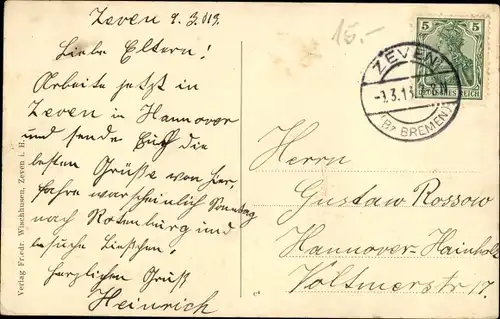 Zeven 9. 3. 013.
Liebe Eltern!
Arbeite jetzt in
Zeven in Hannover
und sende Euch die
besten Grüße von hier,
fahre warscheinlich Sonntag
nach Rotenburg und
besuche Lieschen.
Herzlichen Gruß
Heinrich
15.-
5 5
DEUTSCHES REICH
ZEVEN
3.13
(Bz BREMEN)
Herrn
Gustav Rossow
Hannover-Hainholz
Voltmerstr 17.
Verlag Friedr. Wischhusen, Zeven i. H.